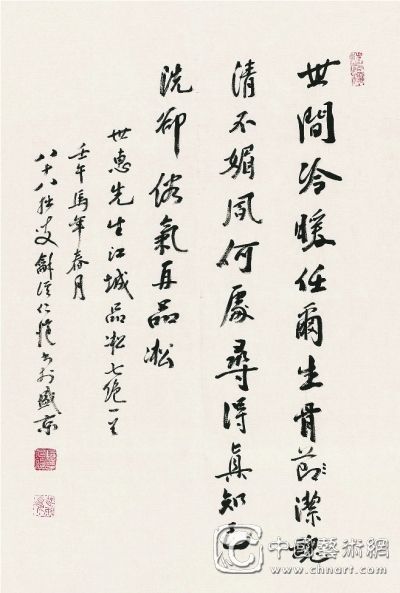 世間冷暖任爾生骨節潔
清不媚風何處尋得真知己
洗卻俗氣再品凇
世惠先生江城品凇七絕一首
壬午馬年春月
八十八拙叟龢溪仁愷书於盛京
中國藝術網
www.chnart.com